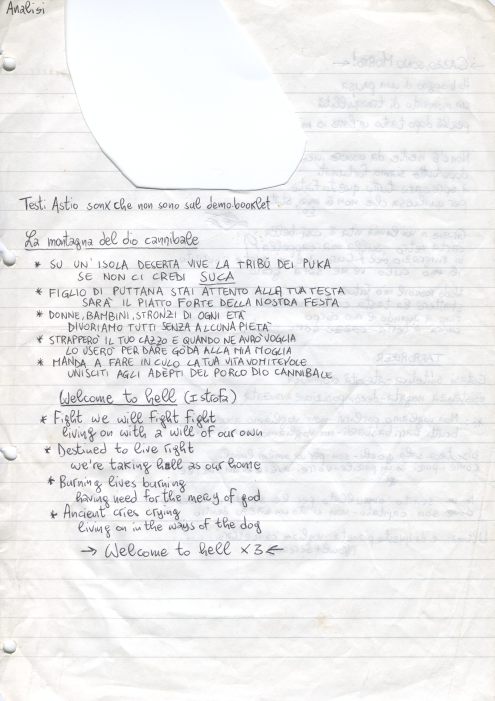 Analisi
Testi Astio sonx che non sono sul demo booklet
La montagna del dio cannibale
* SU UN'ISOLA DESERTA VIVE LA TRIBÙ DEI PUKA
SE NON CI CREDI SUCA
* FIGLIO DI PUTTANA STAI ATTENTO ALLA TUA TESTA
SARA' IL PIATTO FORTE DELLA NOSTRA FESTA
* DONNE, BAMBINI, STRONZI DI OGNI ETÀ
DIVORIAMO TUTTI SENZA ALCUNA PIETÀ
* STRAPPERO' IL TUO CAZZO E QUANDO NE AVRO' VOGLIA
LO USERO' PER DARE GODA ALLA MIA MOGLIA
* MANDA A FARE IN CULO LA TUA VITA VOMITEVOLE
UNISCITI AGLI ADEPTI DEL PORCO DIO CANNIBALE
Welcome to hell (I strofa)
* Fight we will fight fight
living on with a will of our own
* Destined to live right
we're taking hell as our home
* Burning lives burning
having need for the mercy of god
* Ancient cries crying
living on in the ways of the dog
→ Welcome to hell x3 ←